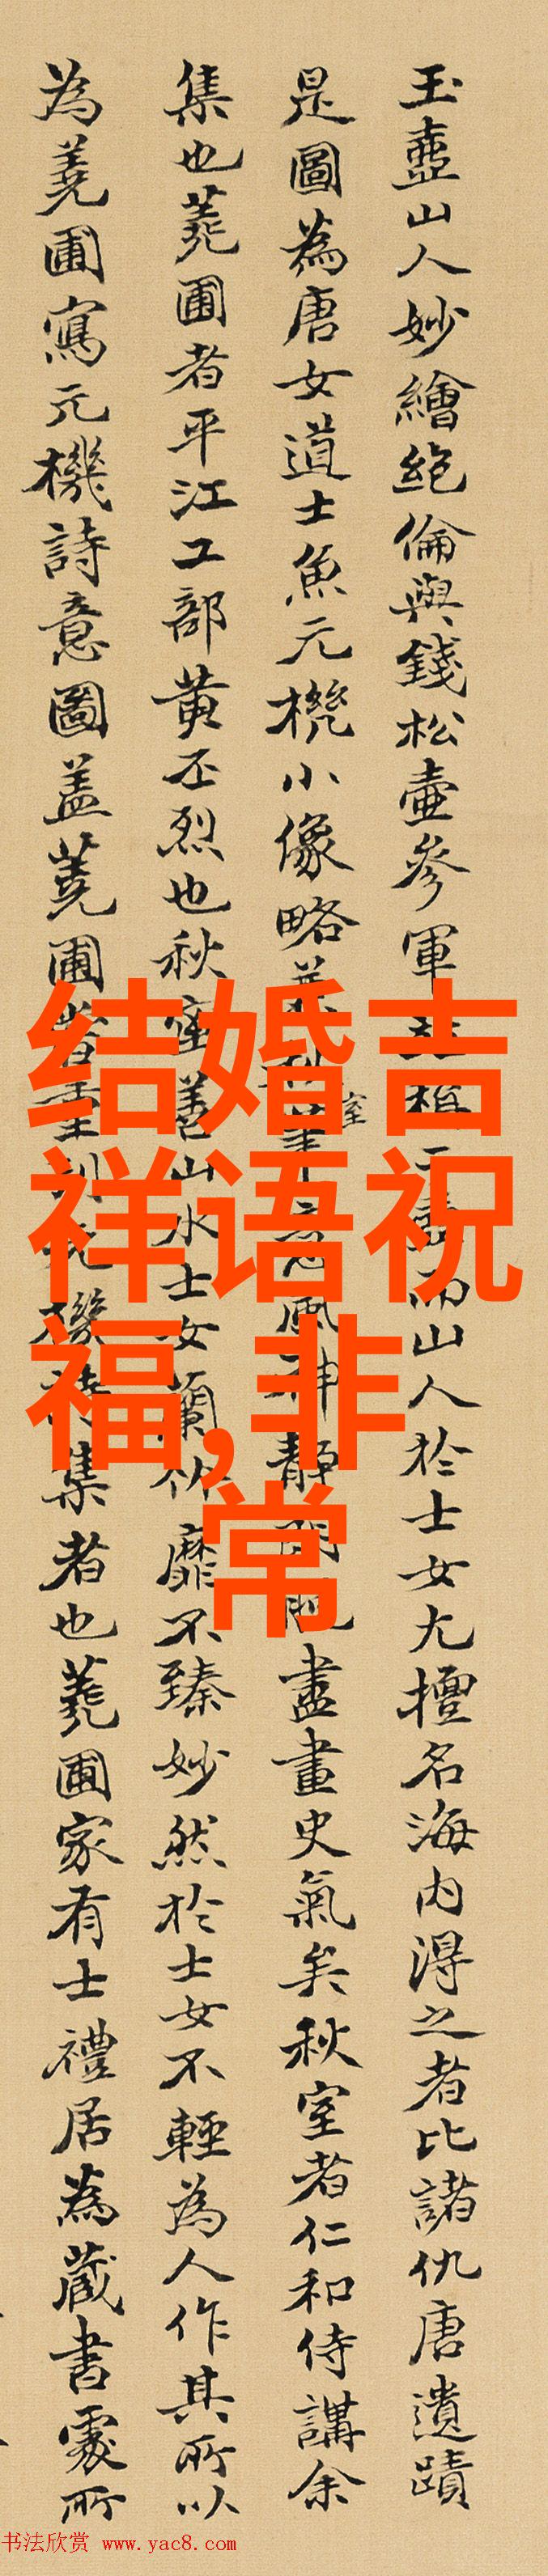 玉壺山人妙繪絶倫與錢松壺參軍並稱二壺而山人於士女尤擅名海内淂之者比諸仇唐遺蹟
是圖為唐女道士魚元機小像略風神靜盡畫史氣矣秋室者仁和侍講余
集也蕘圃者平江工部黄丕烈也秋室善山水士女蘭竹靡不臻妙然於士女不輕為人作其所以
為蕘圃寫元機詩意圖盖蕘圃嘗重刻元機詩集者也蕘圃家有士禮居為藏書處所
结婚吉
祥语祝
福,非
常
书法欣赏 www.yac8.com